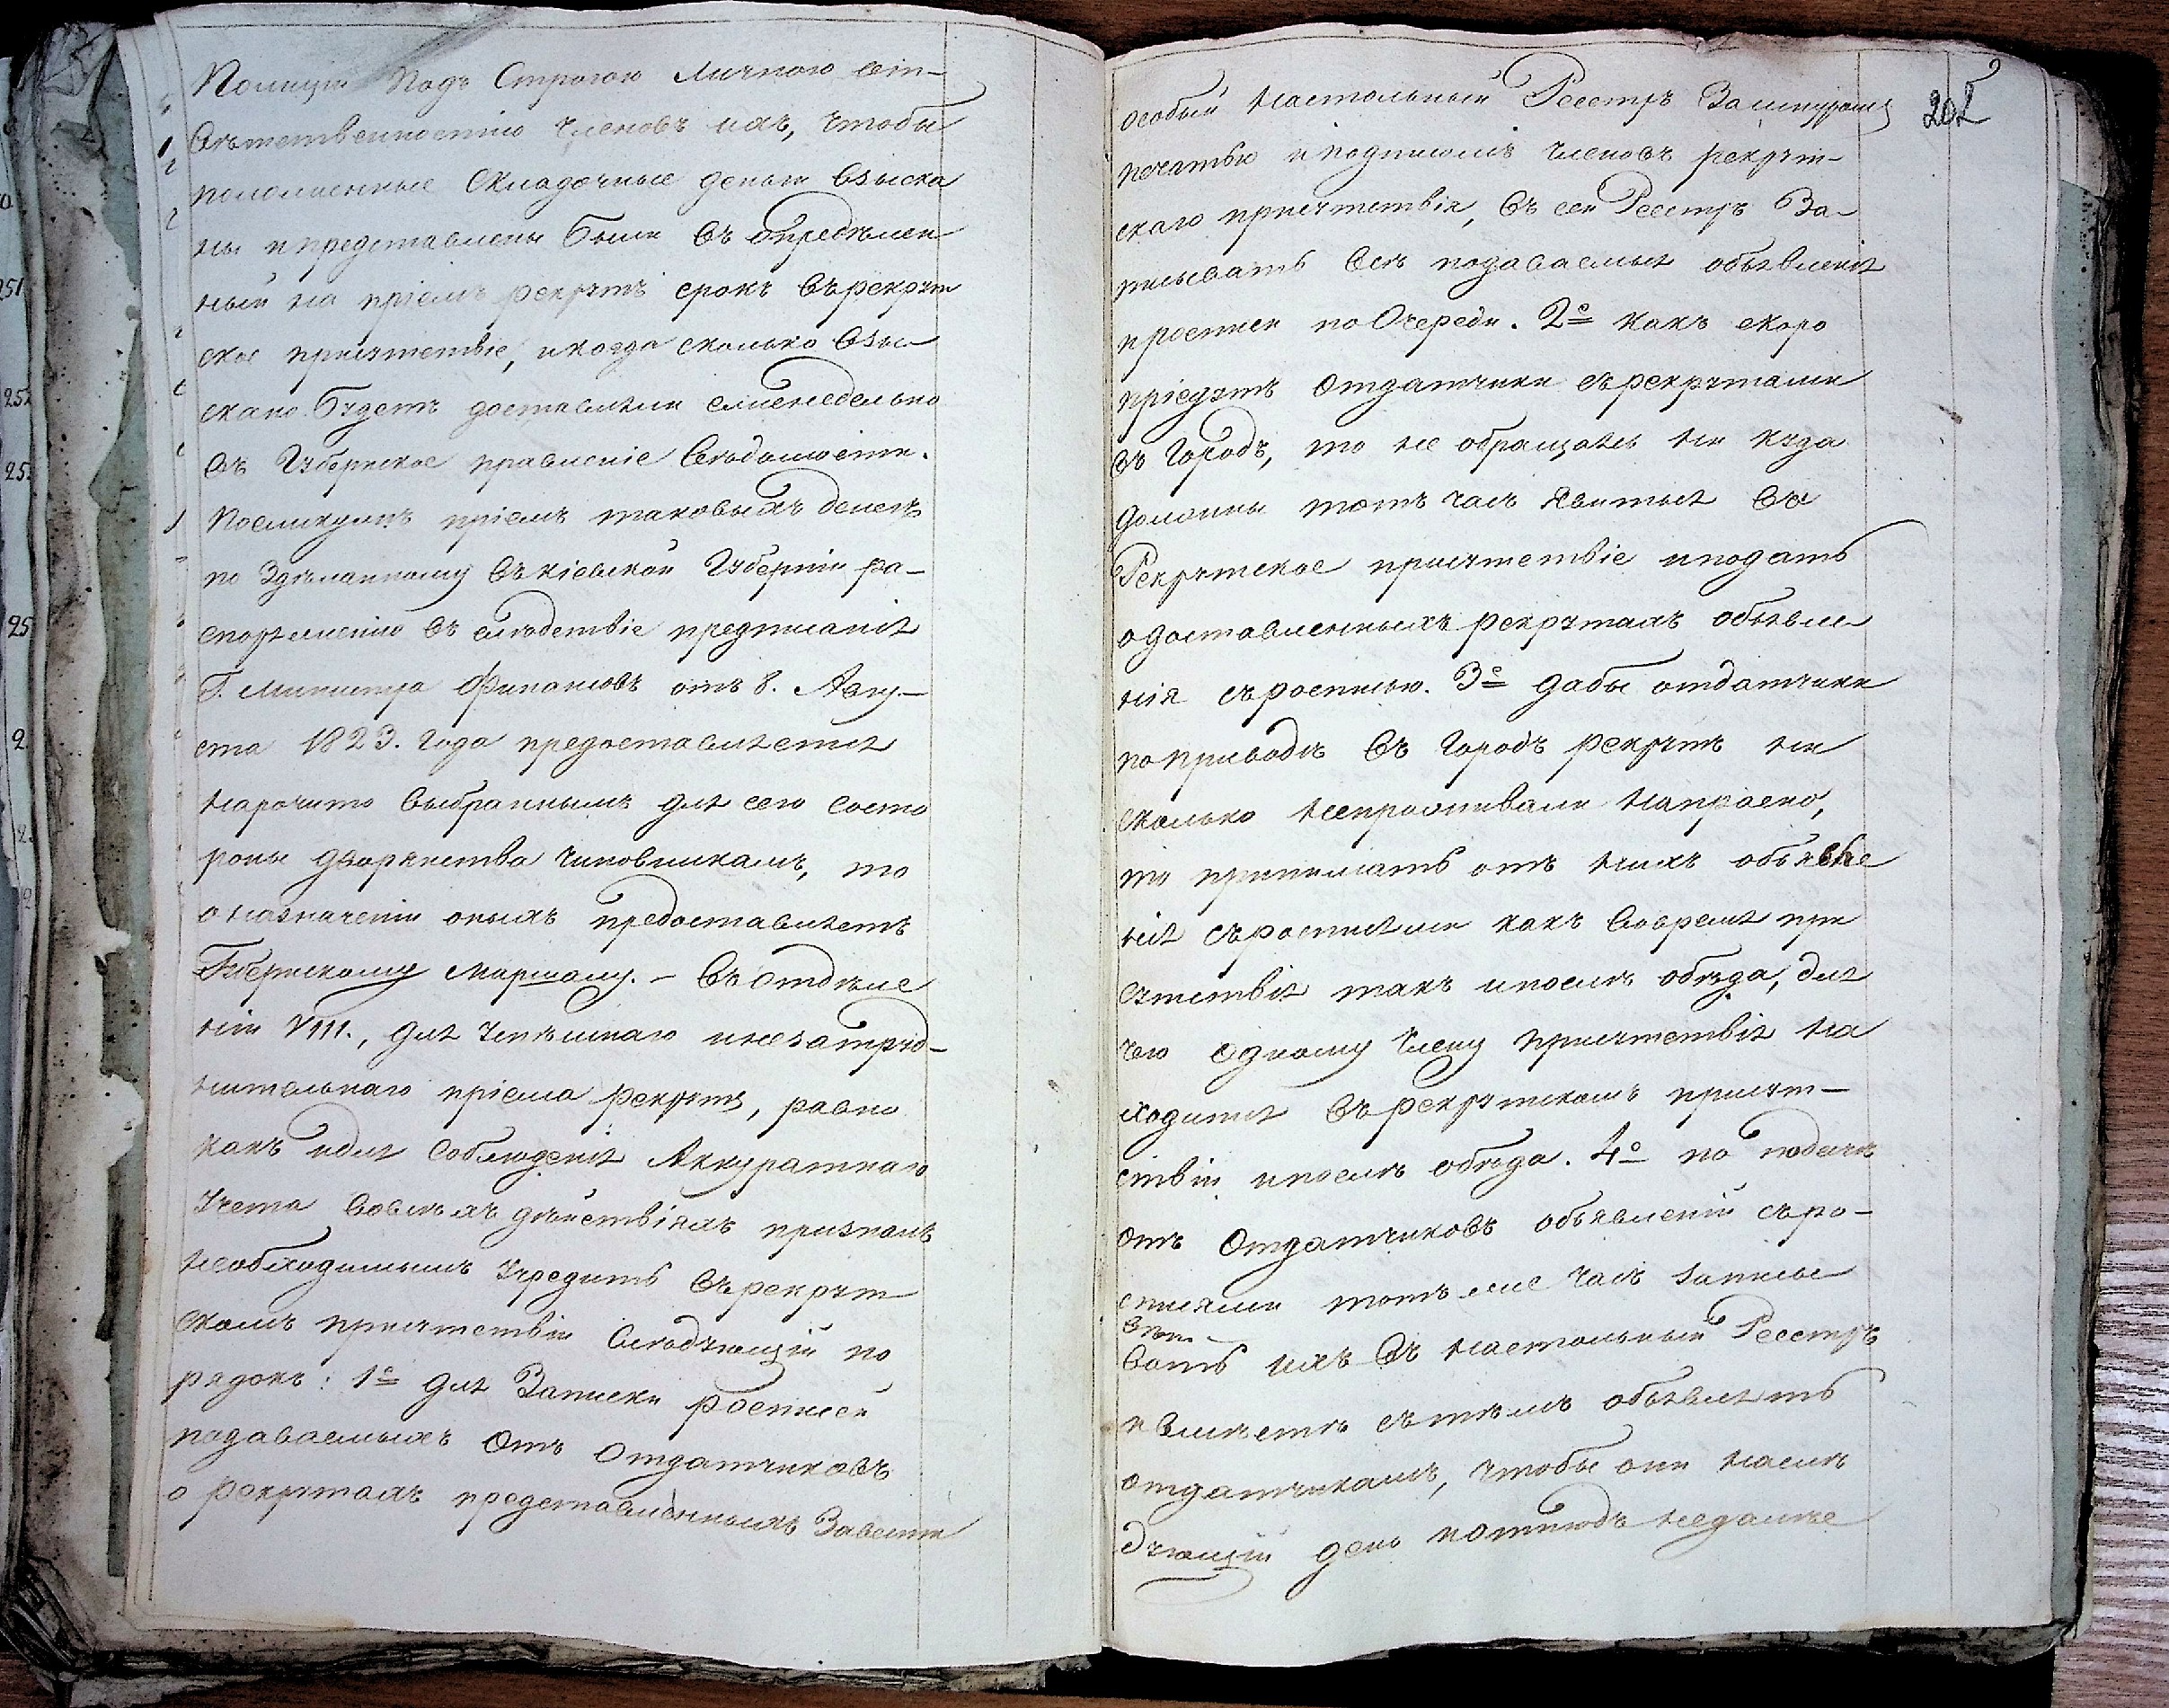 Полиціи подъ строгою личною Отъ-
вѣтственностію Членовъ ихъ, чтобы
положенные складочные деньги взыска
ны и представлены были въ опредѣлен
ный на пріемъ рекрутъ срокъ въ рекрут
ское присутствіе, и когда сколько взы
скано будетъ доставляли еженедельно
въ Губернское правленіе вѣдомости.
Поеликужъ пріемъ таковыхъ денегъ
по здѣланному въ кіевской Губерніи ра-
споряженію въ слѣдствіе предписанія
Г. Министра Финансовъ отъ 8. Авгу-
ста 1823. года предоставляется
нарочито выбраннымъ для сего состо
роны дворянства чиновникамъ, то
о назначеніи оныхъ предоставляетъ
Губернскому Маршалу. – въ Отдѣле
ніи VIII., для успѣшнаго и незатруд-
нительнаго пріема рекрутъ, равно
какъ и для соблюденія Аккуратнаго
Учета вовсѣхъ дѣйствіяхъ призналъ
необходимымъ учредить въ рекрут
скомъ присутствіи слѣдующій по
рядокъ: 1е для Записки росписей
подаваемыхъ Отъ Отдатчиковъ
о рекрутахъ представленныхъ Завести
202
особый настольный Реестръ За шнуромъ
печатью и подписомъ членовъ рекрут-
скаго присутствія, въ сей Реестръ За-
писывать всѣ подаваемыя объявленія
и росписи по Очереди. 2е какъ скоро
пріедутъ Отдатчики съ рекрутами
въ городъ, то не обращаясь ни куда
должны тотъ часъ явиться въ
Рекрутское присутствіе и подать
о доставленныхъ рекрутахъ объявле
нія съ росписью. 3е дабы отдатчики
по приводѣ въ городъ рекрутъ ни
сколько непроживали напрасно,
то принимать отъ нихъ объявле
нія съ росписями какъ вовремя при
сутствія такъ и послѣ обѣда, для
чего одному Члену присутствія на
ходится въ рекрутскомъ присут-
ствіи и послѣ обѣда. 4е по подачѣ
отъ Отдатчиковъ объявленій съ ро-
списями тотъ же часъ записы
вать ихъ въ настольный Реестръ
и вмѣстѣ съ тѣмъ объявлять
отдатчикамъ, чтобы они на слѣ
дующій день и отнюдъ недалѣе